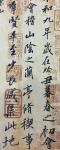 和九年歲在癸丑暮春之初會
會稽山陰之蘭亭脩稧事
群賢畢至少長咸集此地